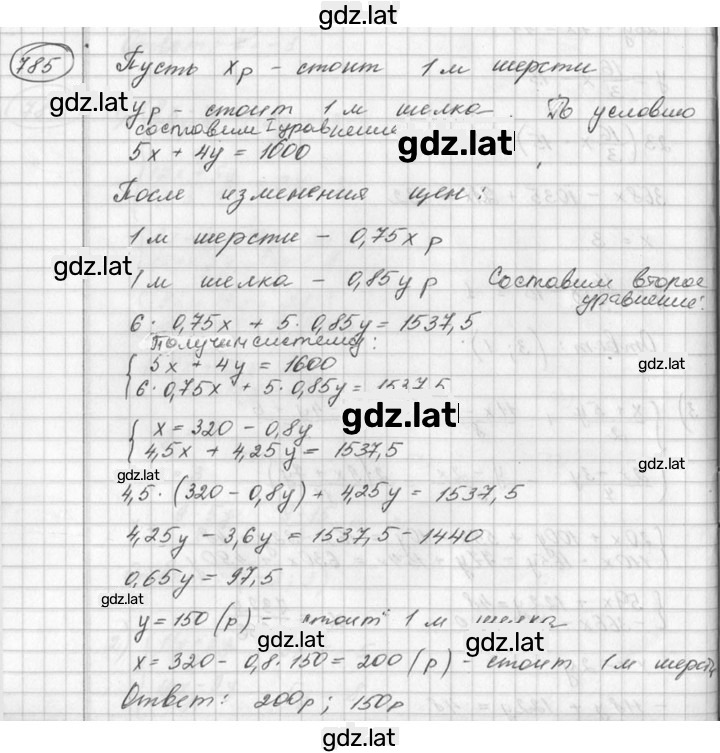 gdz.lat
785 Пусть xр - стоит 1 м шерсти
gdz.lat
yр - стоит 1 м шелка. По условию
составим I уравнение
gdz.lat
5x + 4y = 1600
После изменения цен:
1 м шерсти - 0,75x р
gdz.lat
1 м шелка - 0,85y р Составим второе
уравнение:
6 · 0,75x + 5 · 0,85y = 1537,5
Получим систему:
{ 5x + 4y = 1600
gdz.lat
6 · 0,75x + 5 · 0,85y = 1537,5
gdz.lat
{ x = 320 - 0,8y
4,5x + 4,25y = 1537,5
gdz.lat
gdz.lat
4,5 · (320 - 0,8y) + 4,25y = 1537,5
4,25y - 3,6y = 1537,5 - 1440
0,65y = 97,5
gdz.lat
y = 150 (р) - стоит 1 м шелка
gdz.lat
gdz.lat
x = 320 - 0,8 · 150 = 200 (р) - стоит 1 м шерсти
Ответ: 200р; 150р
gdz.lat